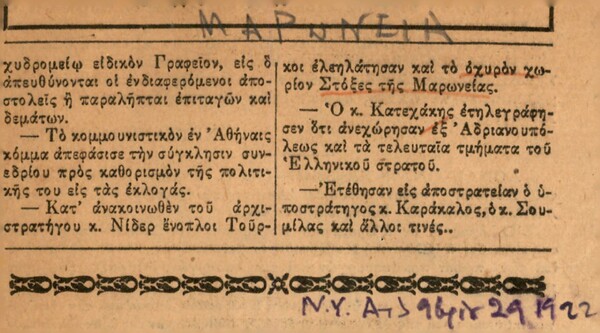 ΜΑΡΩΝΕΙΑ
χυδρομείῳ εἰδικὸν Γραφεῖον, εἰς ὃ
ἀπευθύνονται οἱ ἐνδιαφερόμενοι ἀπο-
στολεῖς ἢ παραλῆπται ἐπιταγῶν καὶ
δεμάτων.
— Τὸ κομμουνιστικὸν ἐν Ἀθήναις
κόμμα ἀπεφάσισε τὴν σύγκλησιν συν-
εδρίου πρὸς καθορισμὸν τῆς πολιτι-
κῆς του εἰς τὰς ἐκλογάς.
— Κατ' ἀνακοινωθὲν τοῦ ἀρχι-
στρατήγου κ. Νίδερ ἔνοπλοι Τοῦρ-
κοι ἐλεηλάτησαν καὶ τὸ ὀχυρὸν χω-
ρίον Στόξες τῆς Μαρωνείας.
— Ὁ κ. Κατεχάκης ἐτηλεγράφη-
σεν ὅτι ἀνεχώρησαν ἐξ Ἀδριανουπό-
λεως καὶ τὰ τελευταῖα τμήματα τοῦ
Ἑλληνικοῦ στρατοῦ.
— Ἐτέθησαν εἰς ἀποστρατείαν ὁ ὑ-
ποστράτηγος κ. Καράκαλος, ὁ κ. Σου-
μίλας καὶ ἄλλοι τινές..
Ν.Υ. 29 1922